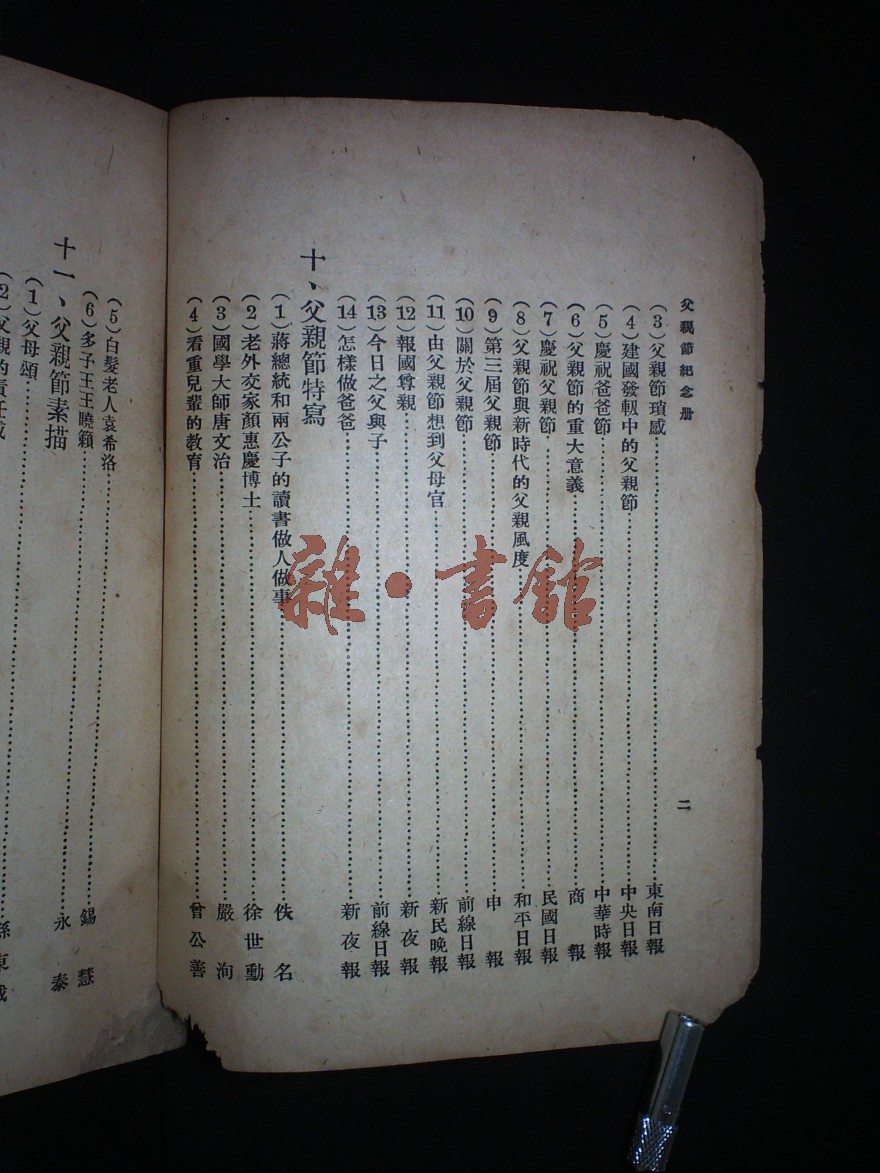 父親節紀念册
二
(3)父親節瑣感……東南日報
(4)建國發軔中的父親節……中央日報
(5)慶祝爸爸節……中華時報
(6)父親節的重大意義……商報
(7)慶祝父親節……民國日報
(8)父親節與新時代的父親風度……和平日報
(9)第三屆父親節……申報
(10)關於父親節……前線日報
(11)由父親節想到父母官……新民晚報
(12)報國尊親……新夜報
(13)今日之父與子……前線日報
(14)怎樣做爸爸……新夜報
十、父親節特寫
(1)蔣總統和兩公子的讀書做人做事……佚名
(2)老外交家顏惠慶博士……徐世勳
(3)國學大師唐文治……嚴洵
(4)看重兒輩的教育……曾公善
(5)白髮老人袁希洛……錫慧
(6)多子王王曉籟……永泰
十一、父親節素描
(1)父母頌……
(2)父親的責任
雜·書館